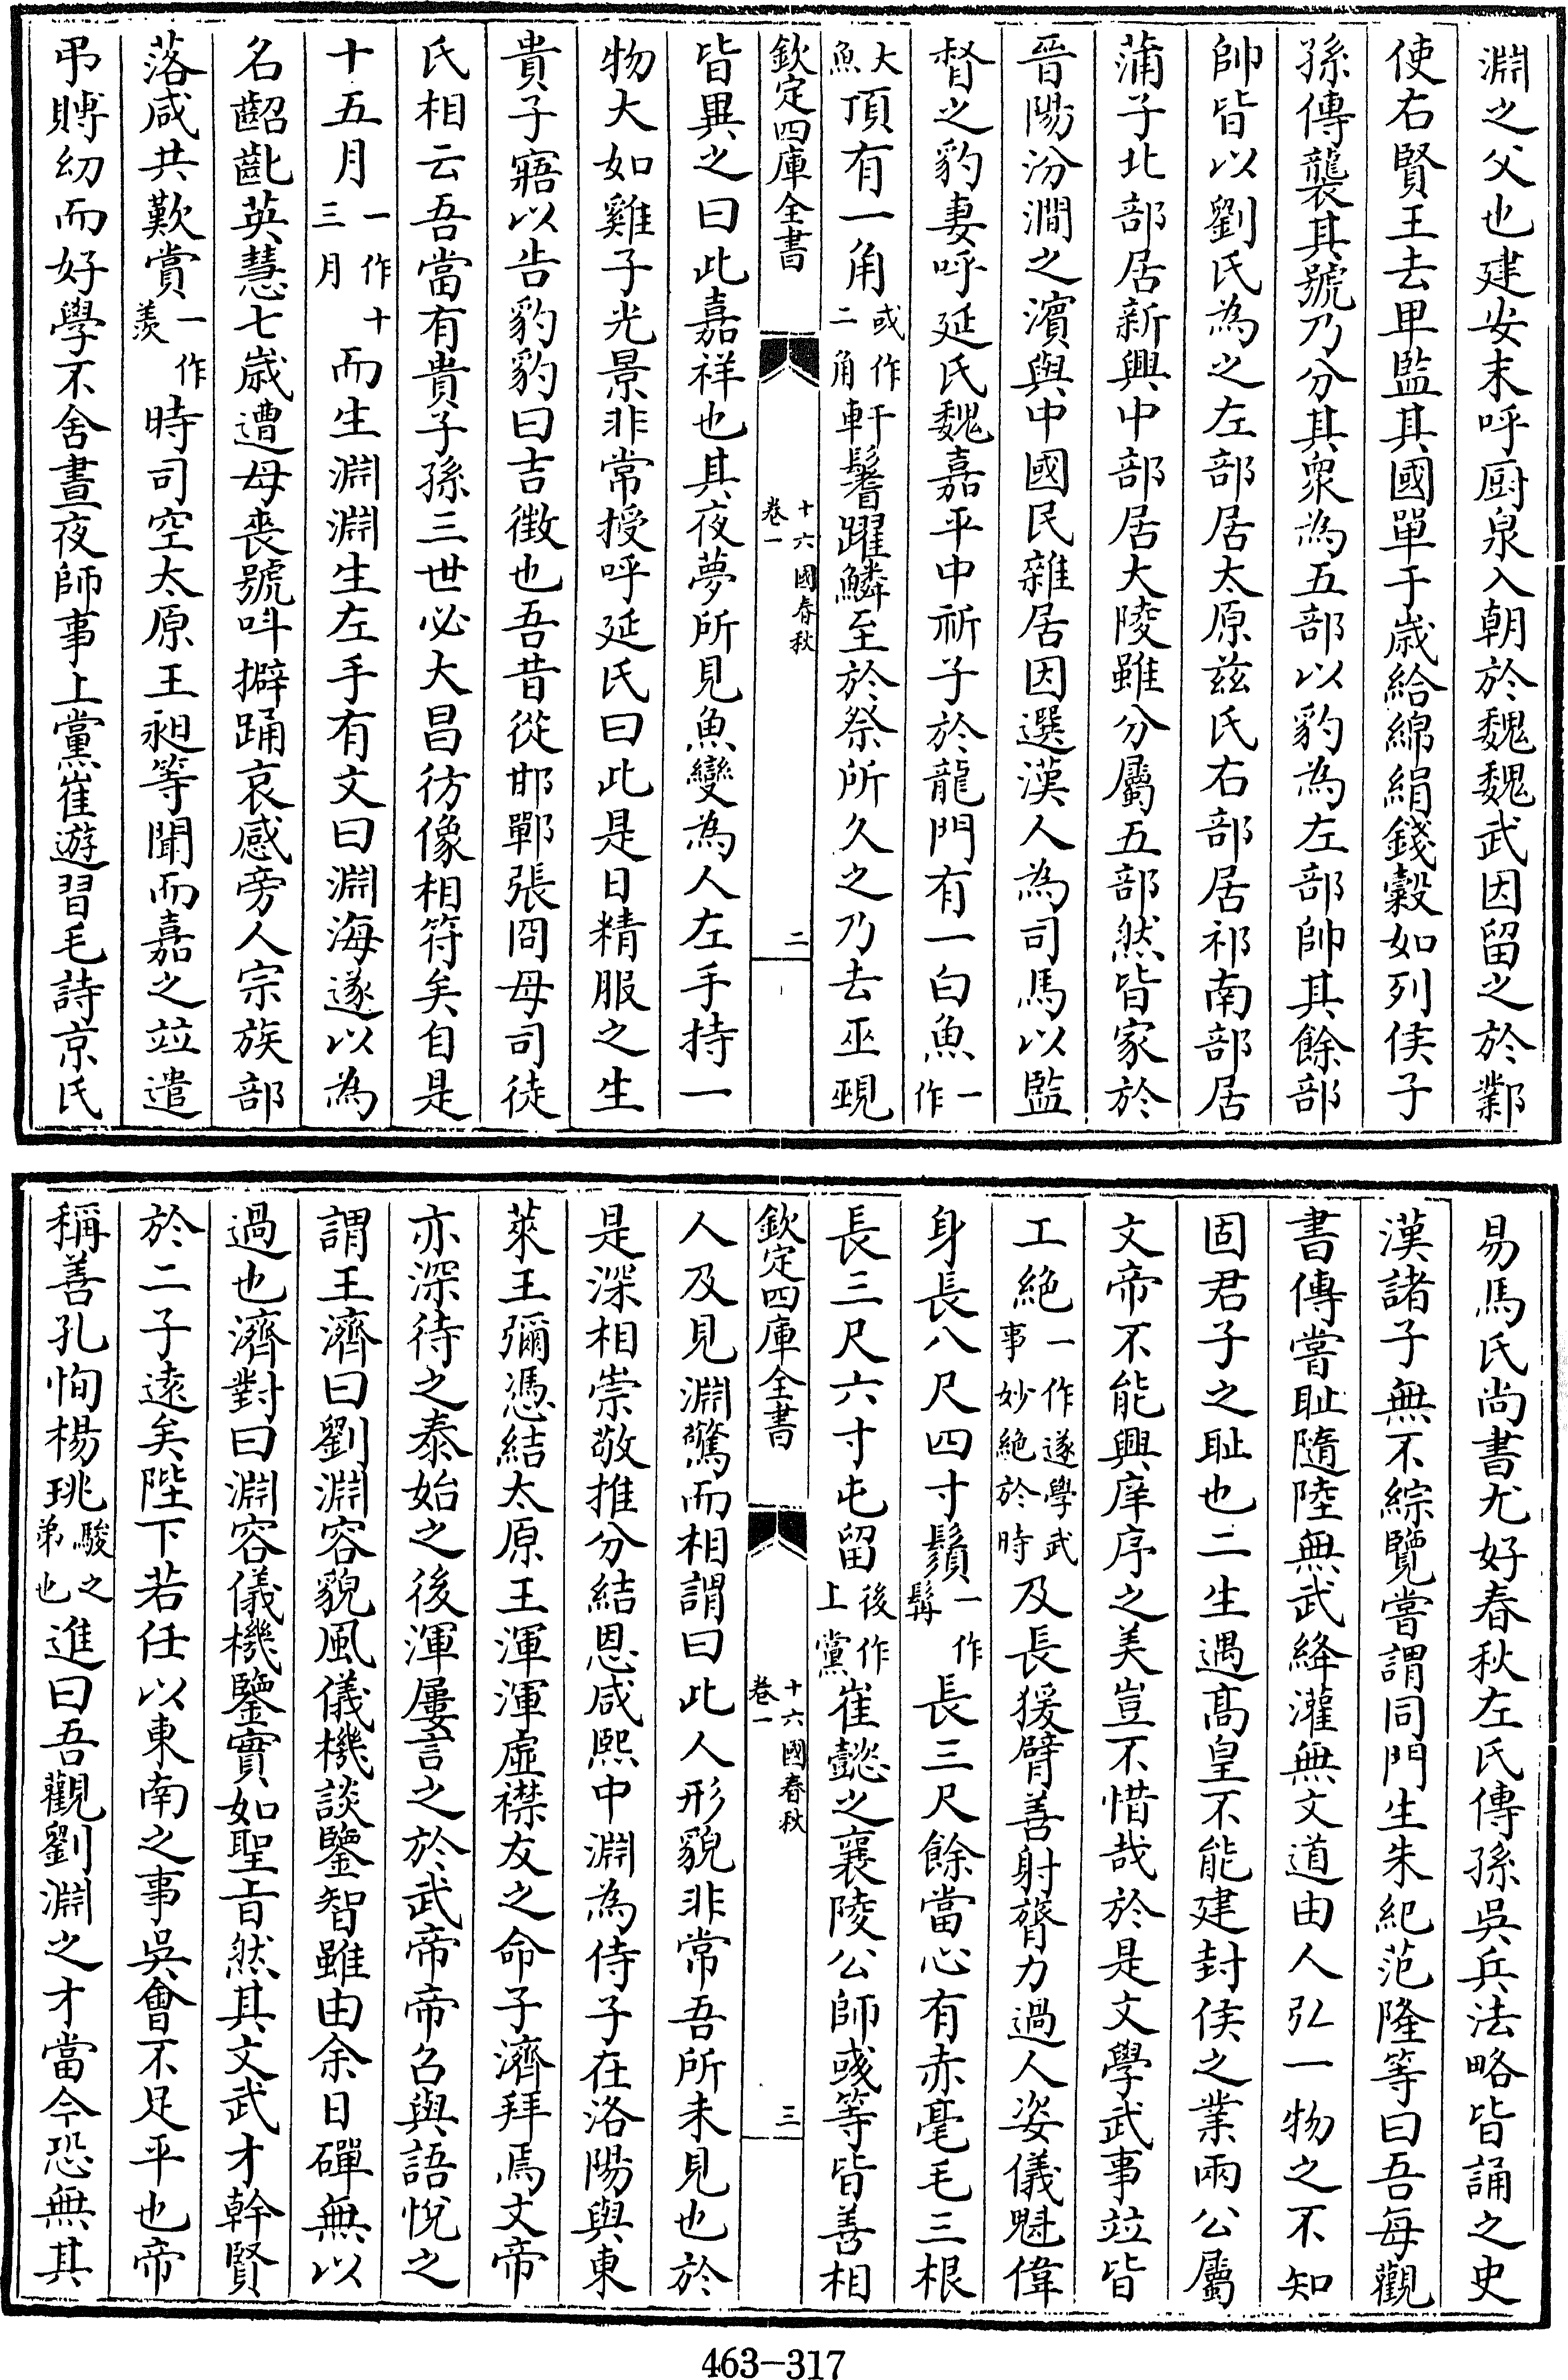 淵之父也建安末呼厨泉入朝於魏魏武因留之於鄴
使右賢王去卑監其國單于歳給綿絹錢糓如列侯子
孫傳襲其號乃分其衆為五部以豹為左部帥其餘部
帥皆以劉氏為之左部居太原兹氏右部居祁南部居
蒲子北部居新興中部居大陵雖分屬五部然皆家於
晉陽汾澗之濱與中國民雜居因選漢人為司馬以監
督之豹妻呼延氏魏嘉平中祈子於龍門有一白魚一作
大魚頂有一角或作二角軒鬐躍鱗至於祭所久之乃去巫覡
欽定四庫全書
十六國春秋
卷一
二
皆異之曰此嘉祥也其夜夢所見魚變為人左手持一
物大如雞子光景非常授呼延氏曰此是日精服之生
貴子寤以告豹豹曰吉徴也吾昔從邯鄲張冏母司徒
氏相云吾當有貴子孫三世必大昌彷像相符矣自是
十五月一作十三月而生淵淵生左手有文曰淵海遂以為
名齠齔英慧七歳遭母喪號呌擗踊哀感旁人宗族部
落咸共歎賞一作羨時司空太原王昶等聞而嘉之竝遣
弔賻幼而好學不舍晝夜師事上黨崔遊習毛詩京氏
易馬氏尚書尤好春秋左氏傳孫吳兵法略皆誦之史
漢諸子無不綜覽嘗謂同門生朱紀范隆等曰吾每觀
書傳嘗耻隨陸無武絳灌無文道由人弘一物之不知
固君子之耻也二生遇髙皇不能建封侯之業兩公屬
文帝不能興庠序之美豈不惜哉於是文學武事竝皆
工絶一作遂學武事妙絶於時及長猨臂善射膂力過人姿儀魁偉
身長八尺四寸鬚一作髯長三尺餘當心有赤毫毛三根
長三尺六寸屯留後作上黨崔懿之襄陵公師彧等皆善相
欽定四庫全書
十六國春秋
卷一
三
人及見淵驚而相謂曰此人形貌非常吾所未見也於
是深相崇敬推分結恩咸熙中淵為侍子在洛陽與東
萊王彌憑結太原王渾渾虛襟友之命子濟拜焉文帝
亦深待之泰始之後渾屢言之於武帝帝召與語悅之
謂王濟曰劉淵容貌風儀機談鑒智雖由余日磾無以
過也濟對曰淵容儀機鑒實如聖旨然其文武才幹賢
於二子遠矣陛下若任以東南之事吳會不足平也帝
稱善孔恂楊珧駿之弟也進曰吾觀劉淵之才當今恐無其
463-317